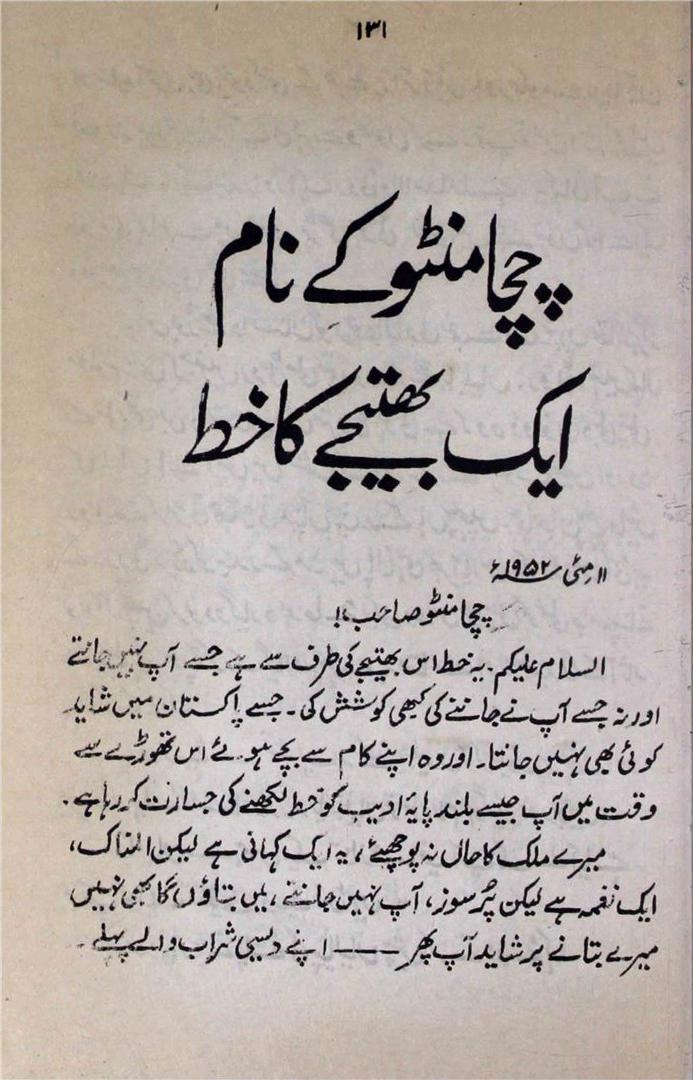 ۱۳۱
چچا منٹو کے نام
ایک بھتیجے کا خط
۱۱ مئی ۱۹۵۲ء
چچا منٹو صاحب،!
السلام علیکم. یہ خط اس بھتیجے کی طرف سے ہے جسے آپ نہیں جانتے
اور نہ جسے آپ نے جاننے کی کبھی کوشش کی۔ جسے پاکستان میں شاید
کوئی بھی نہیں جانتا۔ اور وہ اپنے کام سے بچے ہوئے اس تھوڑے سے
وقت میں آپ جیسے بلند پایۂ ادیب کو خط لکھنے کی جسارت کر رہا ہے.
میرے ملک کا حال نہ پوچھیئے، یہ ایک کہانی ہے لیکن المناک،
ایک نغمہ ہے لیکن پُرسوز، آپ نہیں جانتے، میں بتاؤں گا بھی نہیں
میرے بتانے پر شاید آپ پھر —— اپنے دیسی شراب والے پہلے۔